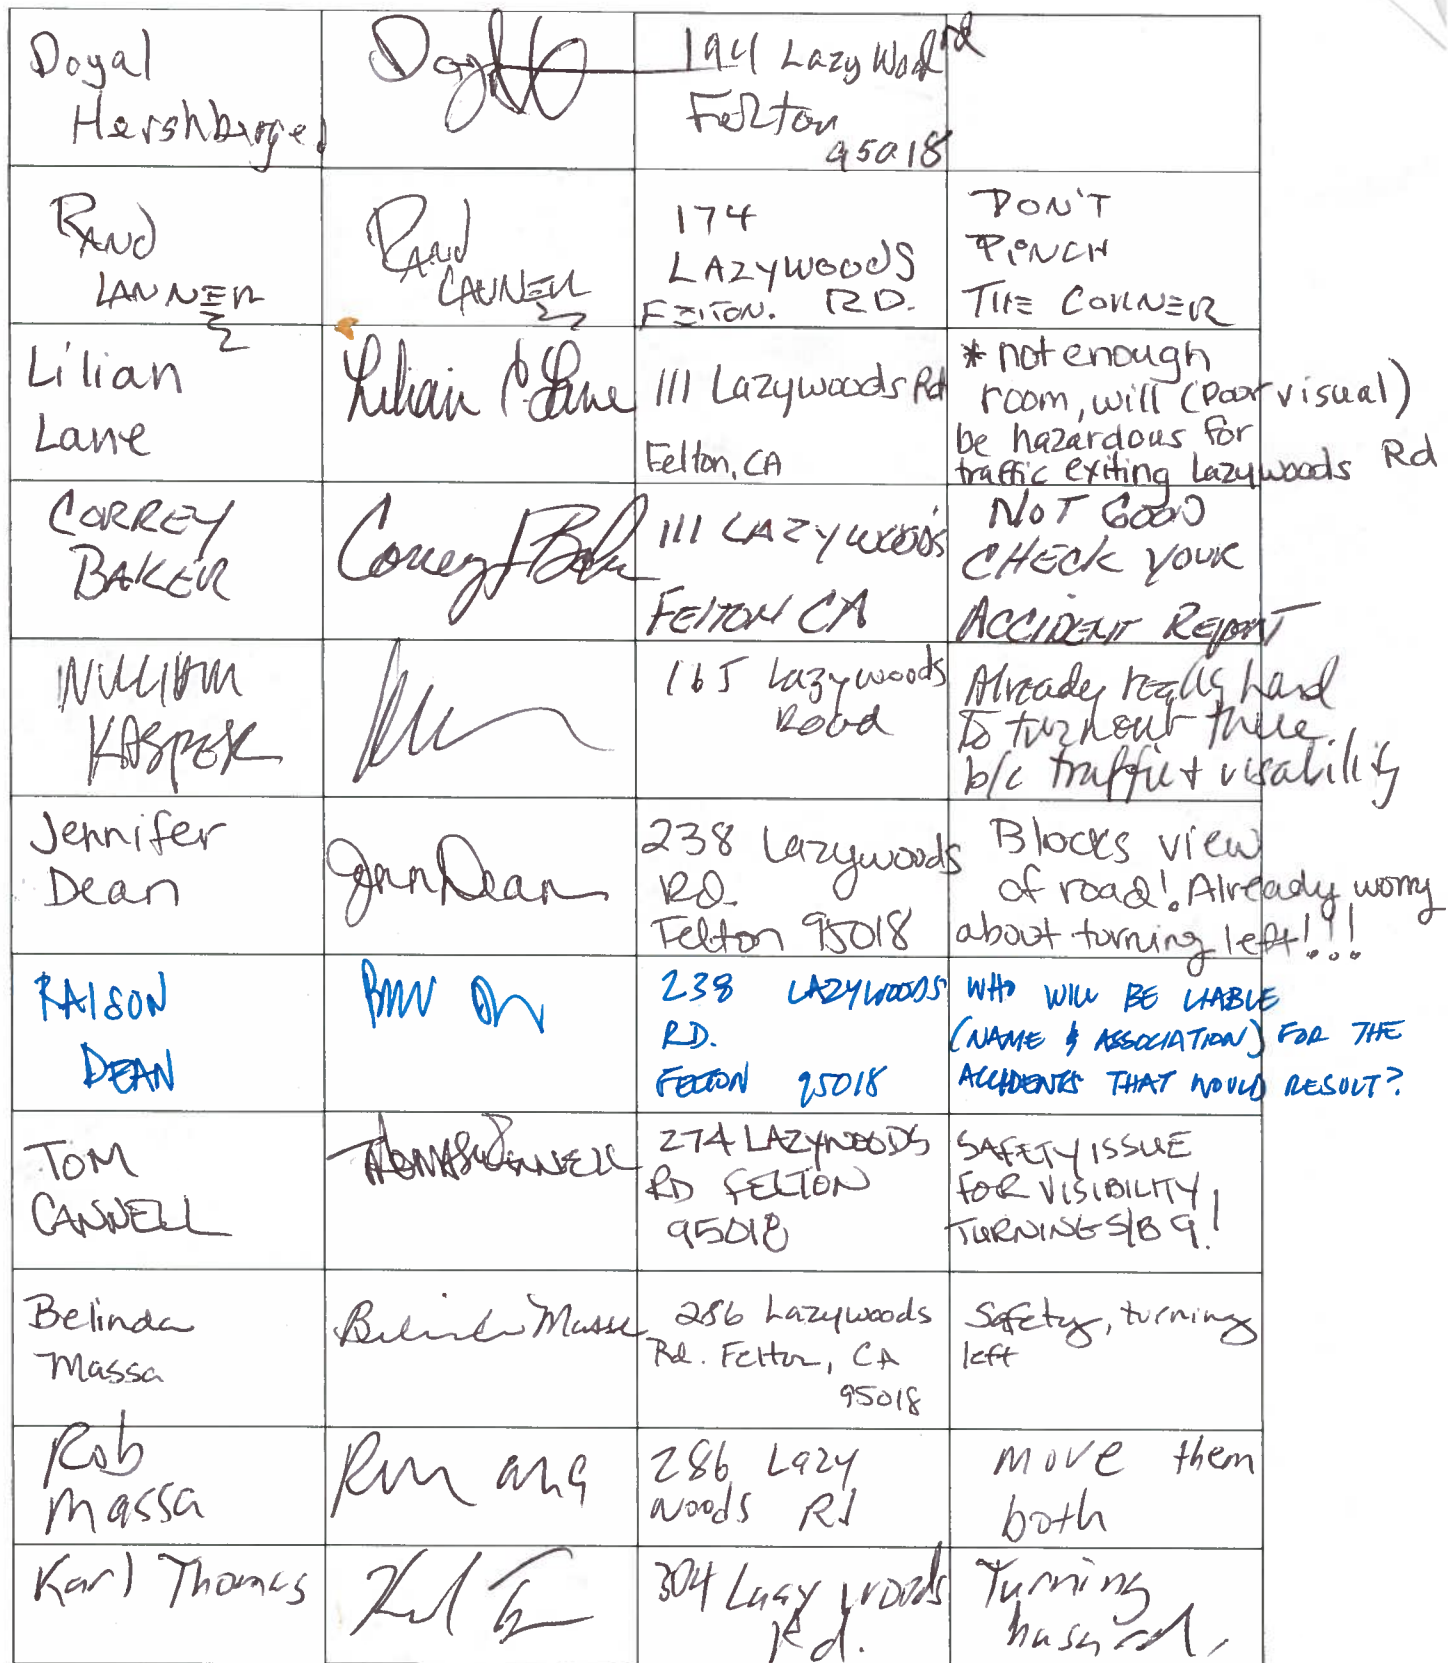 Doyal
Hershberger
194 Lazy Wood rd
Felton
95018
RAND
LANNER
RAND
LANNER
174
LAZYWOODS
FELTON. RD.
DON'T
PINCH
THE CORNER
Lilian
Lane
Lilian C. Lane
111 Lazywoods Rd
Felton, CA
* not enough
room, will (poor visual)
be hazardous for
traffic exiting Lazywoods Rd
CORREY
BAKER
Correy Baker
111 LAZYWOODS
FELTON CA
NOT GOOD
CHECK YOUR
ACCIDENT REPORT
WILLIAM
KASPER
165 Lazywoods
Road
Already really hard
to turn out there
b/c traffic + visability
Jennifer
Dean
Jenn Dean
238 Lazywoods
RD.
Felton 95018
Blocks view
of road! Already worry
about turning left!!!
RAISON
DEAN
238 LAZYWOODS
RD.
FELTON 95018
WHO WILL BE LIABLE
(NAME & ASSOCIATION) FOR THE
ACCIDENTS THAT WOULD RESULT?
TOM
CANNELL
THOMAS CANNELL
274 LAZYWOODS
RD FELTON
95018
SAFETY ISSUE
FOR VISIBILITY,
TURNING S/B 9!
Belinda
Massa
Belinda Massa
286 Lazywoods
Rd. Felton, CA
95018
Safety, turning
left
Rob
Massa
286 Lazy
woods Rd
move them
both
Karl Thomas
304 Lazy woods
Rd.
Turning
hasard,